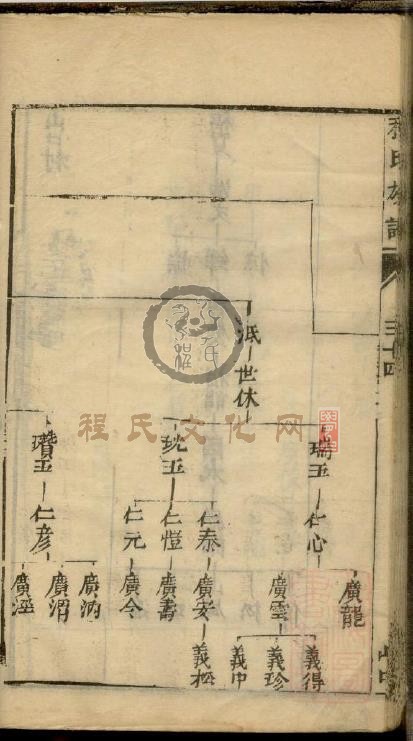 程氏族譜
泜
世休
瑞玉
仁心
廣龍
廣雲
義得
義珍
義中
玧玉
仁泰
廣安
義松
仁愷
廣壽
仁元
廣令
瓚玉
仁彦
廣汭
廣渭
廣涇
程氏文化网